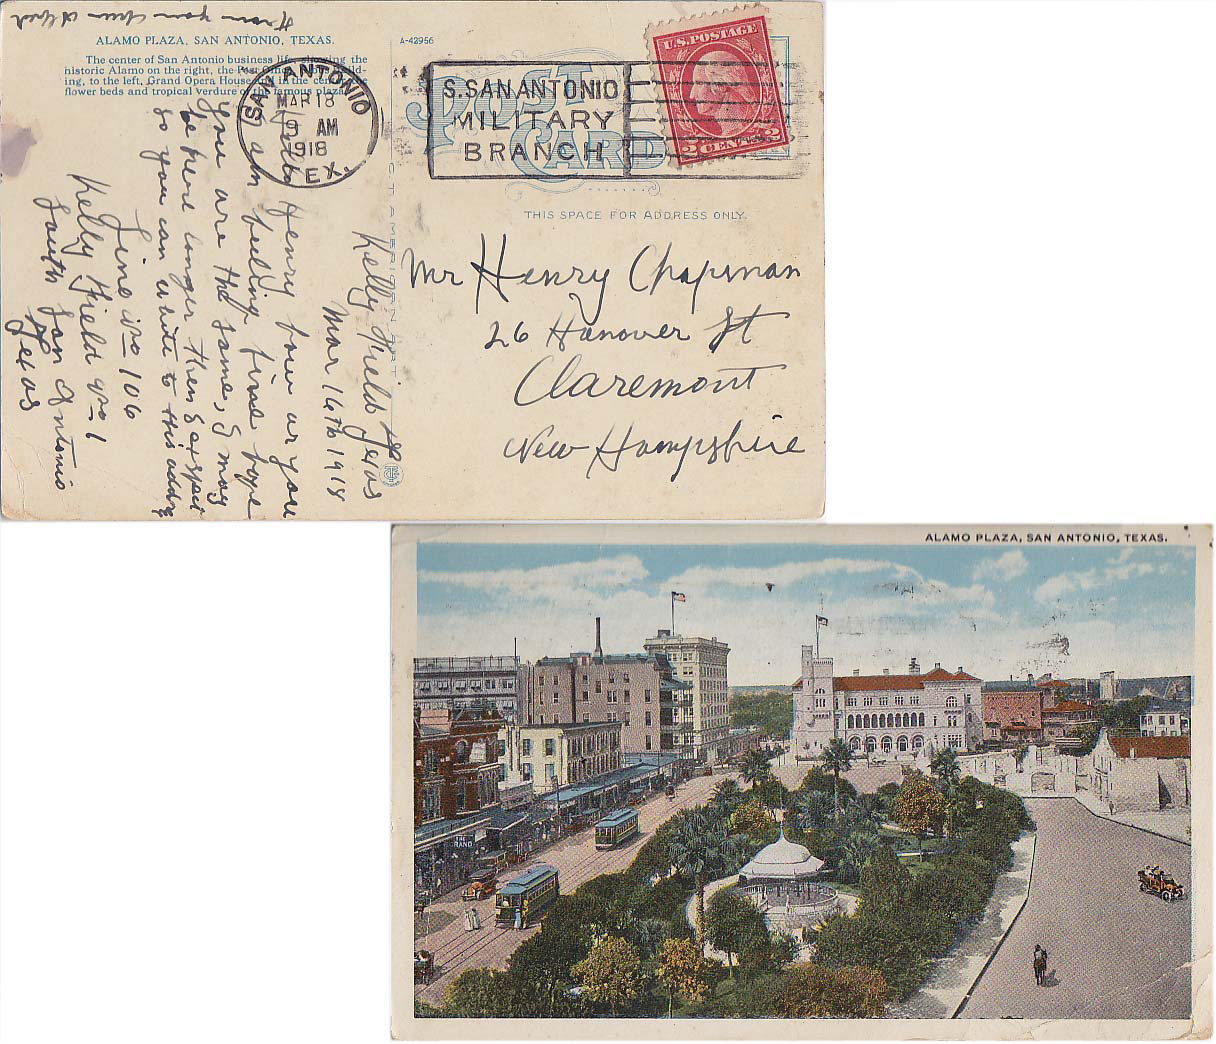 From your chum Alfred
ALAMO PLAZA, SAN ANTONIO, TEXAS.
The center of San Antonio business life, showing the
historic Alamo on the right, the Post Office
ing, to the left, Grand Opera House and in the center the
flower beds and tropical verdure of the famous plaza.
A-42956
SAN ANTONIO
MAR 18
9 AM
1918
TEX.
S. SAN ANTONIO
MILITARY
BRANCH
U.S. POSTAGE
2 CENTS 2
POST
CARD
THIS SPACE FOR ADDRESS ONLY.
C. T. AMERICAN ART
Mr Henry Chapman
26 Hanover St
Claremont
New Hampshire
Kelly Field Texas
Mar 16th 1918
Hello Henry how ar you
I am feeling fine hope
you are the same, I may
be here longer then I expect
so you can write to this addr
Line no 106
Kelly Field no 1
South San Antonio
Texas
ALAMO PLAZA, SAN ANTONIO, TEXAS.
THE
GRAND